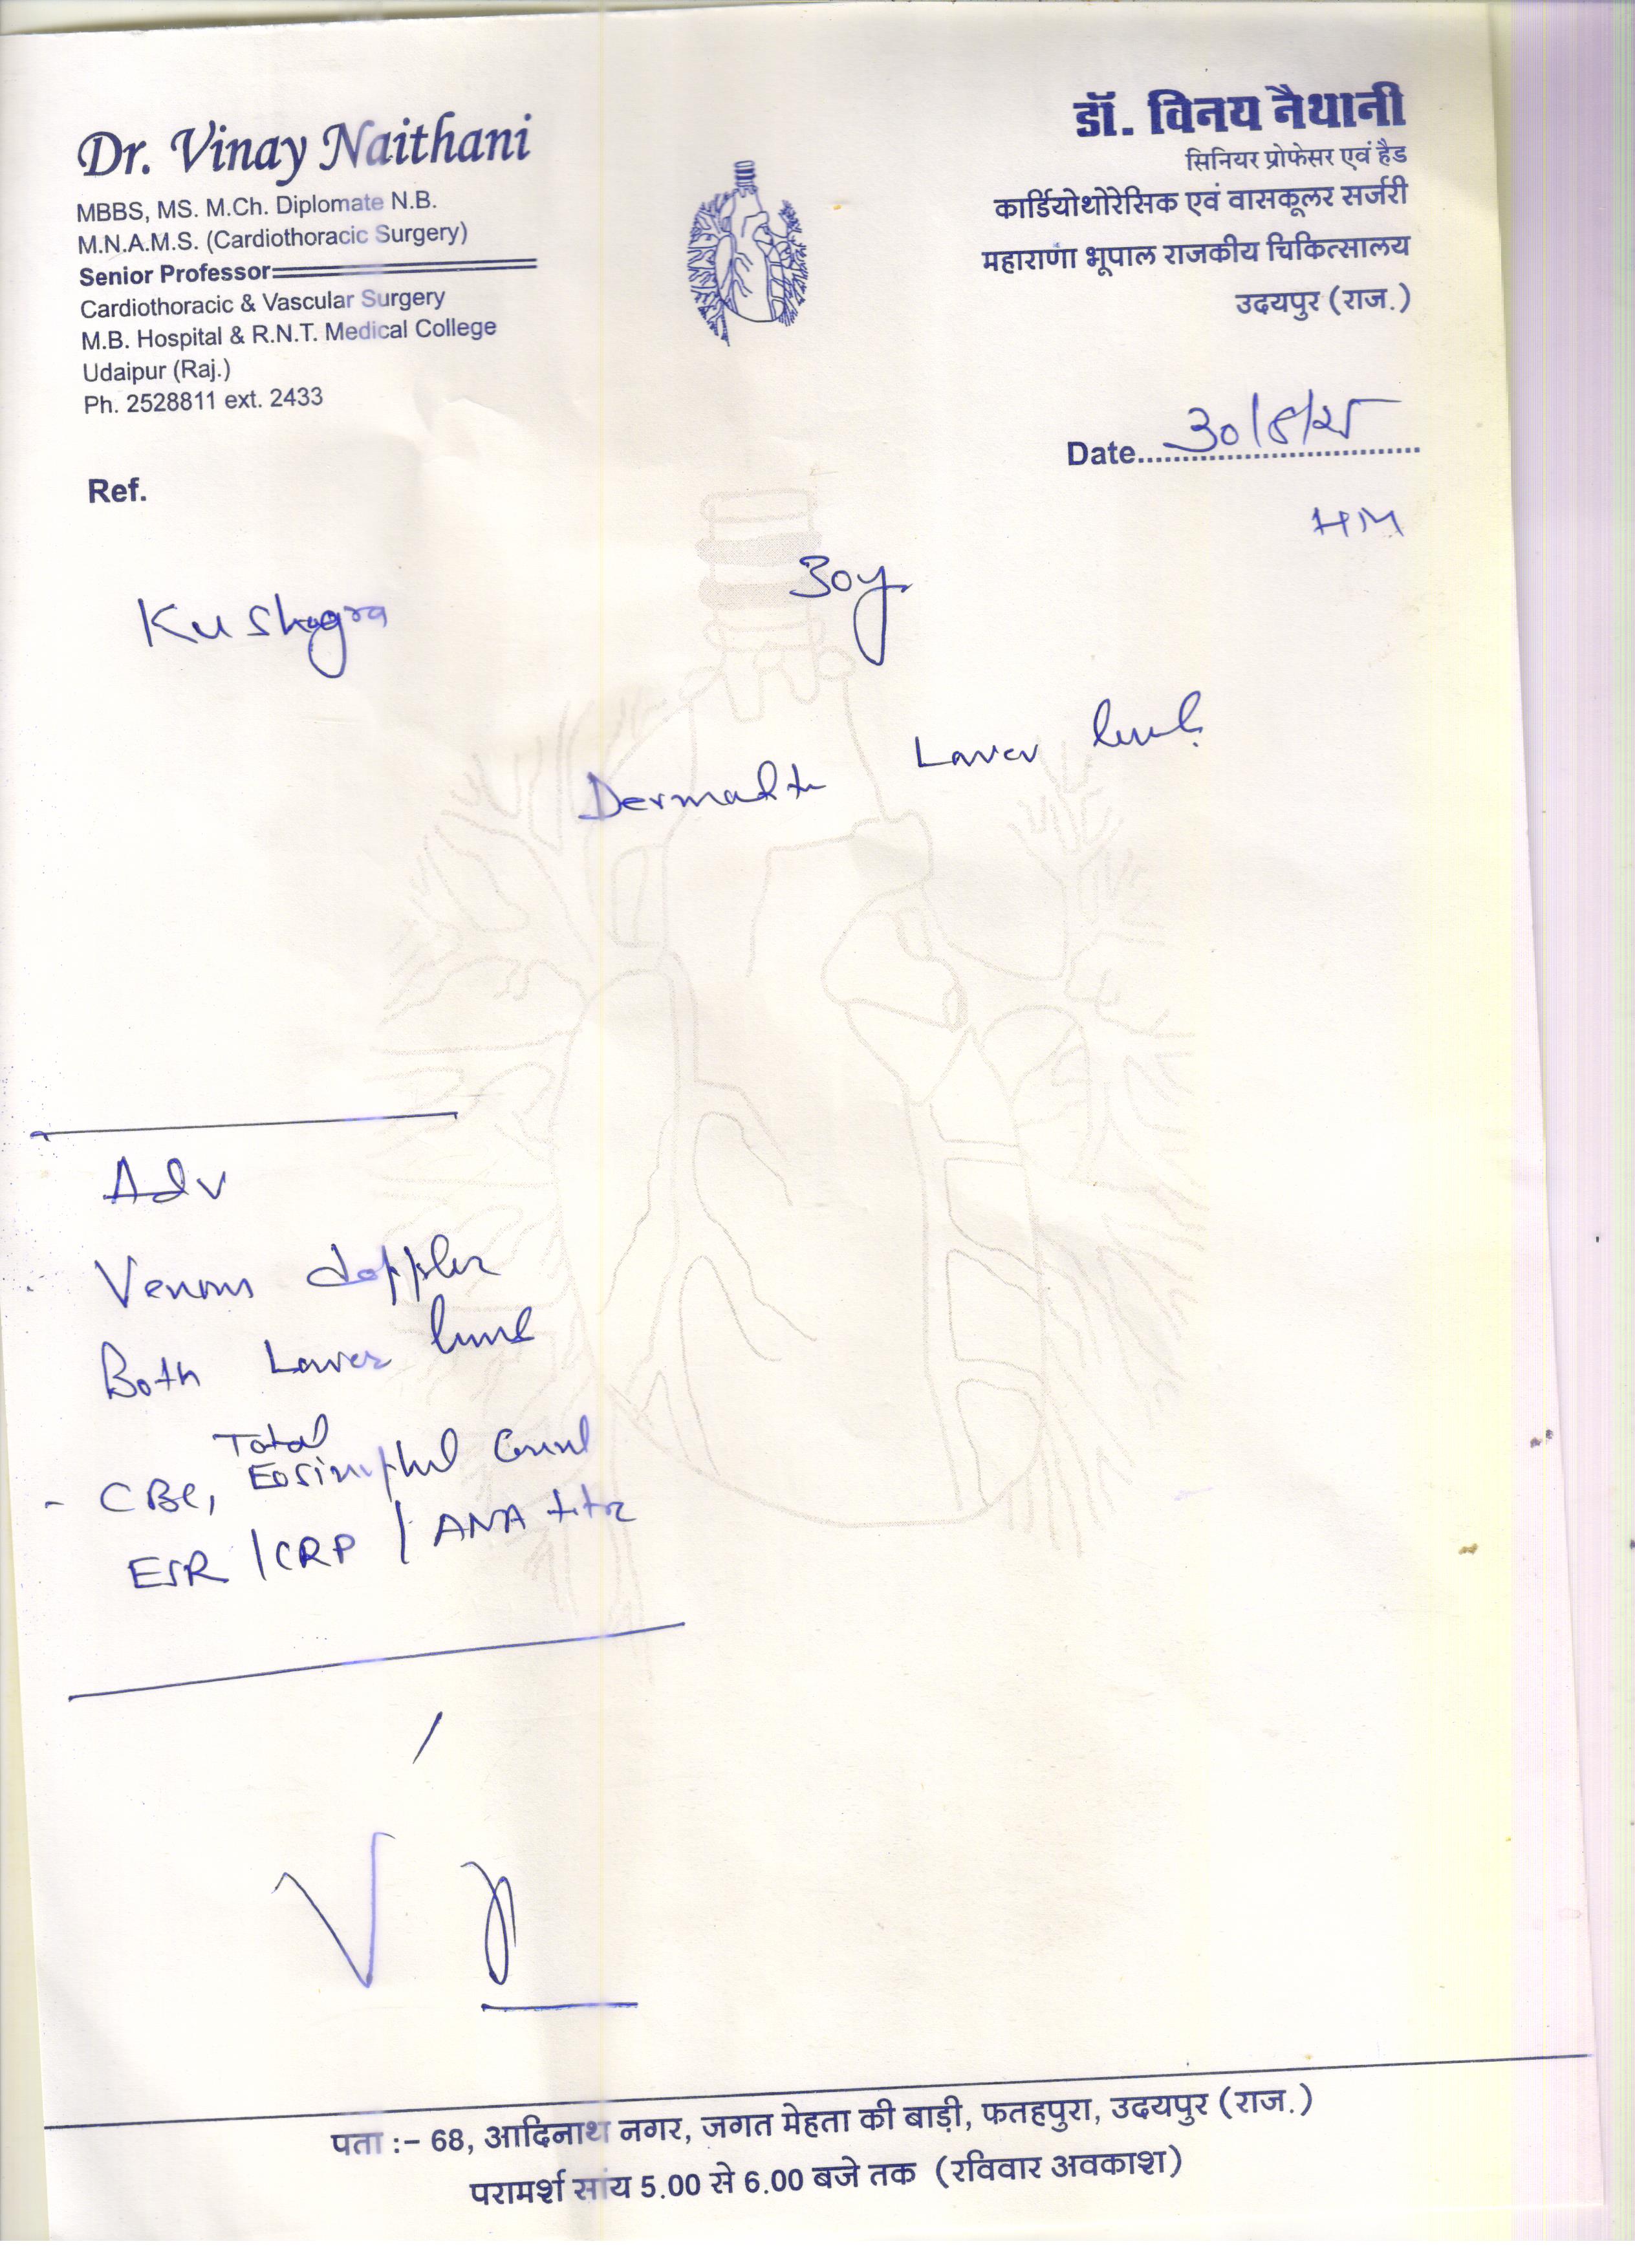 Dr. Vinay Naithani
MBBS, MS. M.Ch. Diplomate N.B.
M.N.A.M.S. (Cardiothoracic Surgery)
Senior Professor
Cardiothoracic & Vascular Surgery
M.B. Hospital & R.N.T. Medical College
Udaipur (Raj.)
Ph. 2528811 ext. 2433
डॉ. विनय नैथानी
सिनियर प्रोफेसर एवं हैड
कार्डियोथोरेसिक एवं वासकूलर सर्जरी
महाराणा भूपाल राजकीय चिकित्सालय
उदयपुर (राज.)
Date 30/8/25
Ref.
Kushagra 30y
Lower limb
Adv
Venous doppler
Both Lower limb
Total
- CBC, Eosinophil Count
ESR / CRP / ANA titre
पता :– 68, आदिनाथ नगर, जगत मेहता की बाड़ी, फतहपुरा, उदयपुर (राज.)
परामर्श सांय 5.00 से 6.00 बजे तक (रविवार अवकाश)